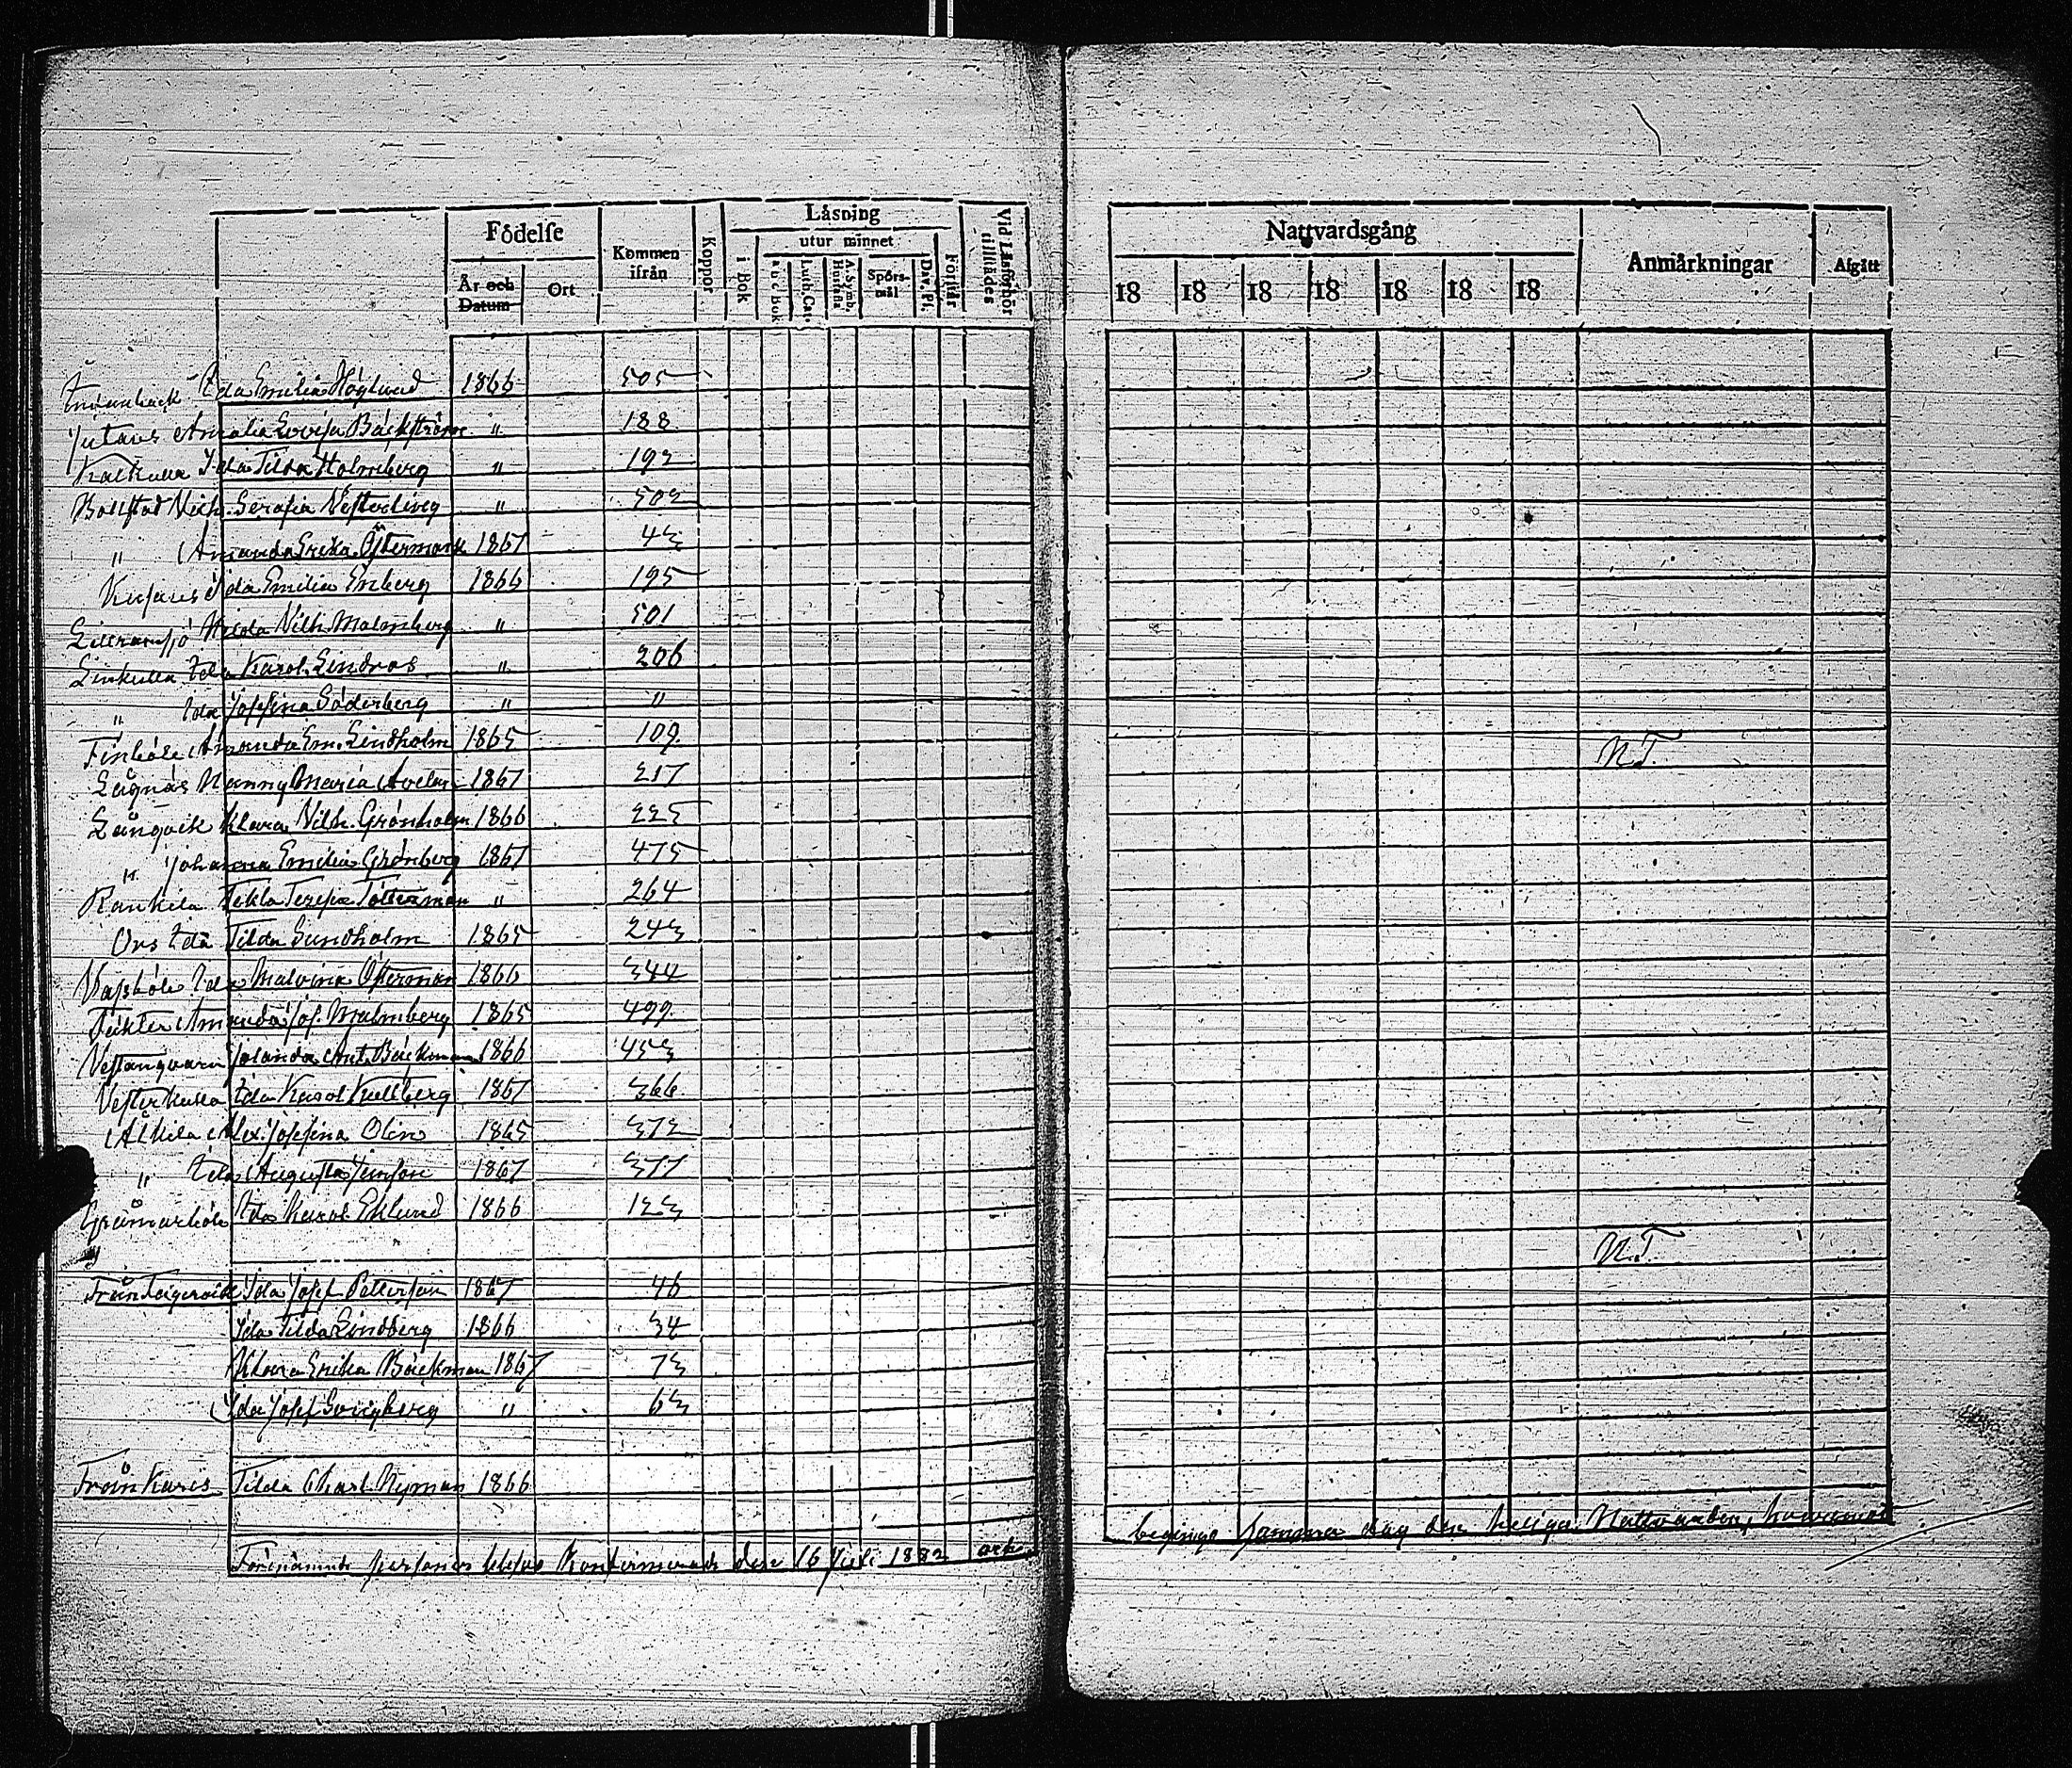 Födelse
Kommen ifrån
Koppor
Läsning
utur minnet
i Bok
a b c Bok
Luth. Cat.
A. Symb. Hustafla
Spörs- mål
Dav. Ps.
Förstår
Vid Läsförhör tillstädes
År och Datum
Ort
Nattvardsgång
Anmärkningar
Afgått
18 18 18 18 18 18 18
Ida Emilia Höglund 1866 505
Jutans Amalia Lovisa Bäckström " 188
Kalkulla Ida Tilda Holmberg " 192
Bollstad Vilh. Serafia Vesterling " 502
" Amanda Erika Östermark 1867 43
Kusans Ida Emilia Enberg 1866 195
Hilda Vilh. Malmberg " 501
Linkulla Ida Karol. Lindros " 206
" Ida Josefina Söderberg " "
Finböle Amanda Em. Lindholm 1865 109 N.T.
Lågnäs Nanny Maria Avelin 1867 217
Långvik Klara Vilh. Grönholm 1866 225
" Johanna Emilia Grönberg 1867 475
Rankila Tekla Teresia Totterman " 264
Ors Ida Tilda Sundholm 1865 243
Vassböle Ida Malvina Österman 1866 344
Täkter Amanda Jos. Malmberg 1865 499
Vestanqvarn Jolanda Ant. Bäckman 1866 453
Vesterkulla Ida Karol Kullberg 1867 366
Alkila Alex. Josefina Olin 1865 372
" Ida Augusta Jonson 1867 377
Gråmarböle Ida Karol. Eklund 1866 123
N.T.
Från Fagervik Ida Josef. Petterson 1867 46
Ida Tilda Lindberg 1866 34
Klara Erika Bäckman 1867 73
Ida Josef. Ljungberg " 63
Från Karis Tilda Charl. Nyman 1866
Förenämnde personer blefvo Konfirmerade den 16 Juli 1882 och
begingo samma dag den heliga Nattvarden, hvaremot